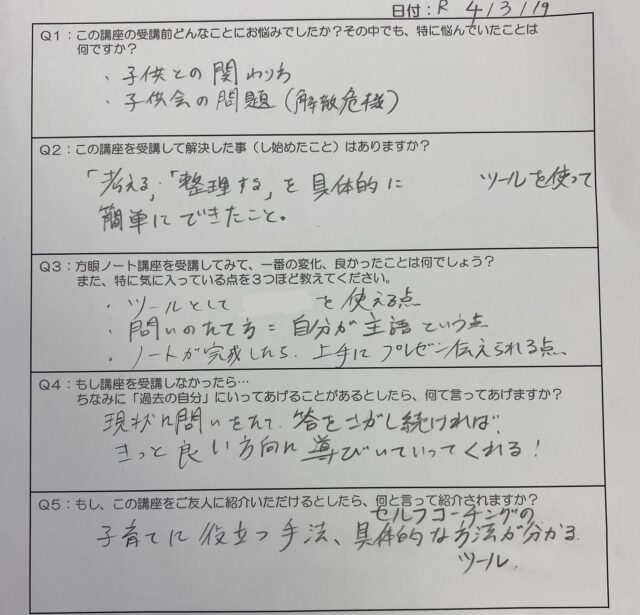 日付：R 4/3/19
Q1：この講座の受講前どんなことにお悩みでしたか？その中でも、特に悩んでいたことは
何ですか？
・子供との関わり
・子供会の問題（解散危機）
Q2：この講座を受講して解決した事（し始めたこと）はありますか？
「考える」・「整理する」を具体的に ツールを使って
簡単にできたこと。
Q3：方眼ノート講座を受講してみて、一番の変化、良かったことは何でしょう？
また、特に気に入っている点を３つほど教えてください。
・ツールとして を使える点
・問いのたて方＝自分が主語という点
・ノートが完成したら、上手にプレゼン伝えられる点、
Q4：もし講座を受講しなかったら…
ちなみに「過去の自分」にいってあげることがあるとしたら、何て言ってあげますか？
現状に問いをたて、答をさがし続ければ、
きっと良い方向に導びいていってくれる！
Q5：もし、この講座をご友人に紹介いただけるとしたら、何と言って紹介されますか？
セルフコーチングの
子育てに役立つ手法、具体的な方法が分かる
ツール.